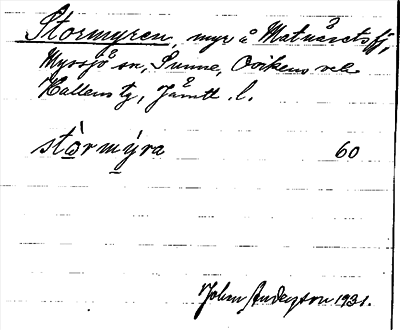 Stormyren, myr å Matnäsets fj,
Myssjö sn, Sunne, Ovikens och
Hallens tg, Jämtl. l.
stòrmýra 60
John Anderson 1931.